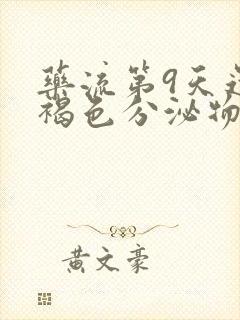 藥流第9天
褐色分泌物
黄文豪